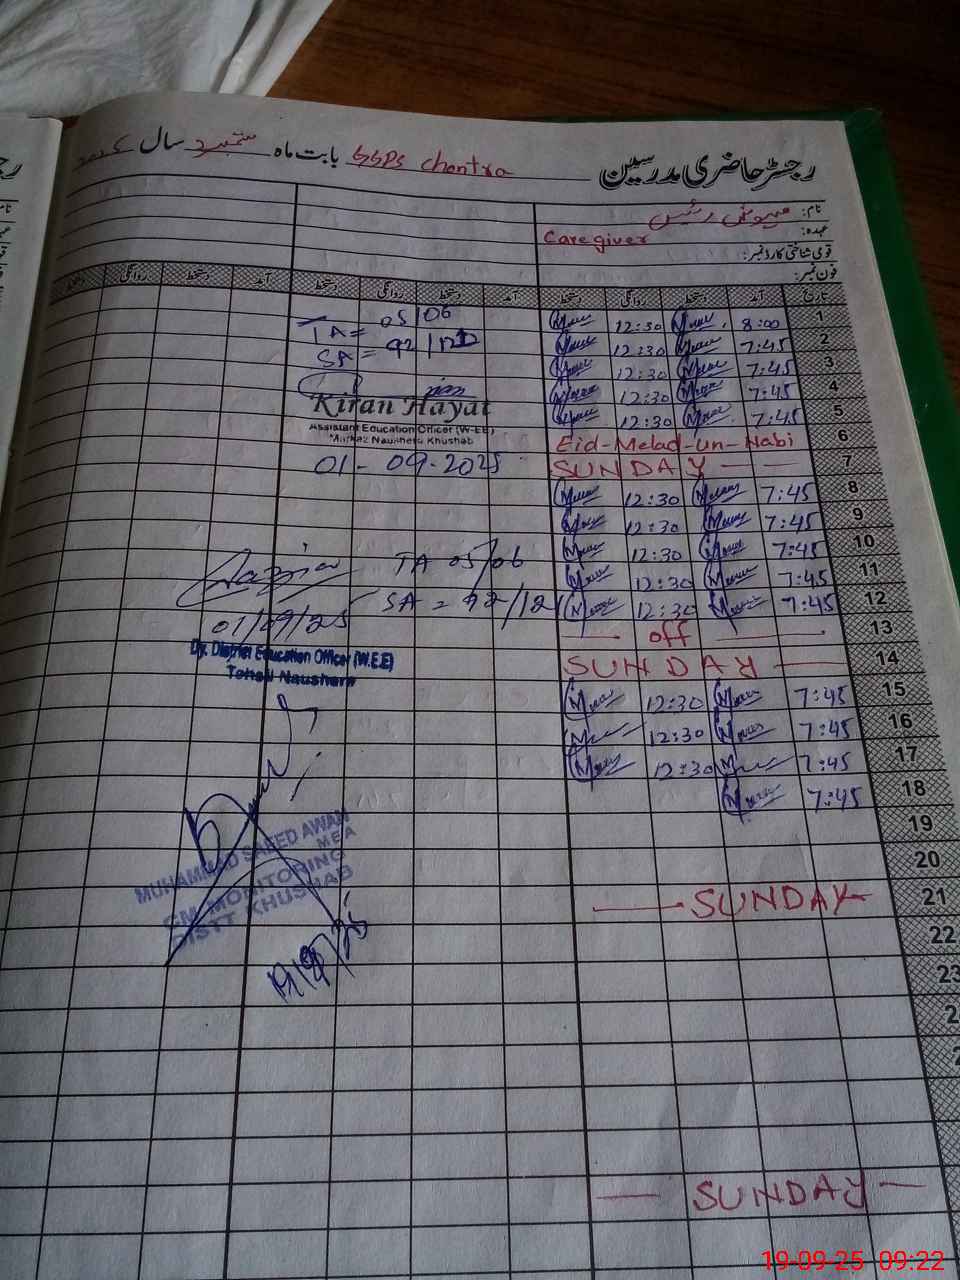 رجسٹر حاضری مدرسین GGPS Chontra بابت ماہ ستمبر سال
نام:
عہدہ: Caregiver
قومی شناختی کارڈ نمبر:
فون نمبر:
تاریخ آمد دستخط روانگی دستخط آمد دستخط روانگی دستخط آمد دستخط روانگی دستخط
1 8:00 12:30
2 7:45 12:30
3 7:45 12:30
4 7:45 12:30
5 7:45 12:30
6 Eid-Melad-un-Nabi
7 SUNDAY
8 7:45 12:30
9 7:45 12:30
10 7:45 12:30
11 7:45 12:30
12 7:45 12:30
13 off
14 SUNDAY
15 7:45 12:30
16 7:45 12:30
17 7:45 12:30
18 7:45
19
20
21 SUNDAY
22
23
SUNDAY
TA = 05/06
SA = 92/121
Kiran Hayat
Assistant Education Officer (W-EE)
Markaz Naushera Khushab
01-09-2025
TA 05/06
SA = 92/121
Nazia
01/09/25
Dy. District Education Officer (W.E.E)
Tehsil Naushera
MUHAMMAD SAEED AWAN
MEA
CM MONITORING
DISTT KHUSHAB
19/9/25
19-09-25 09:22